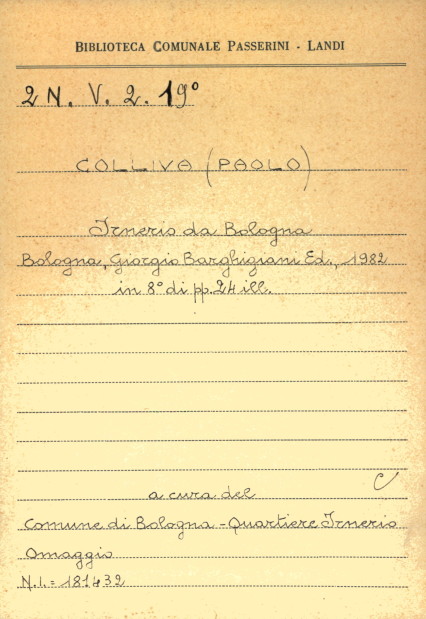 BIBLIOTECA COMUNALE PASSERINI - LANDI
2 N. V. 2. 19°
COLLIVA (PAOLO)
Irnerio da Bologna
Bologna, Giorgio Barghigiani Ed., 1982
in 8° di pp. 24 ill.
C
a cura del
Comune di Bologna - Quartiere Irnerio
Omaggio
N.I. = 181432